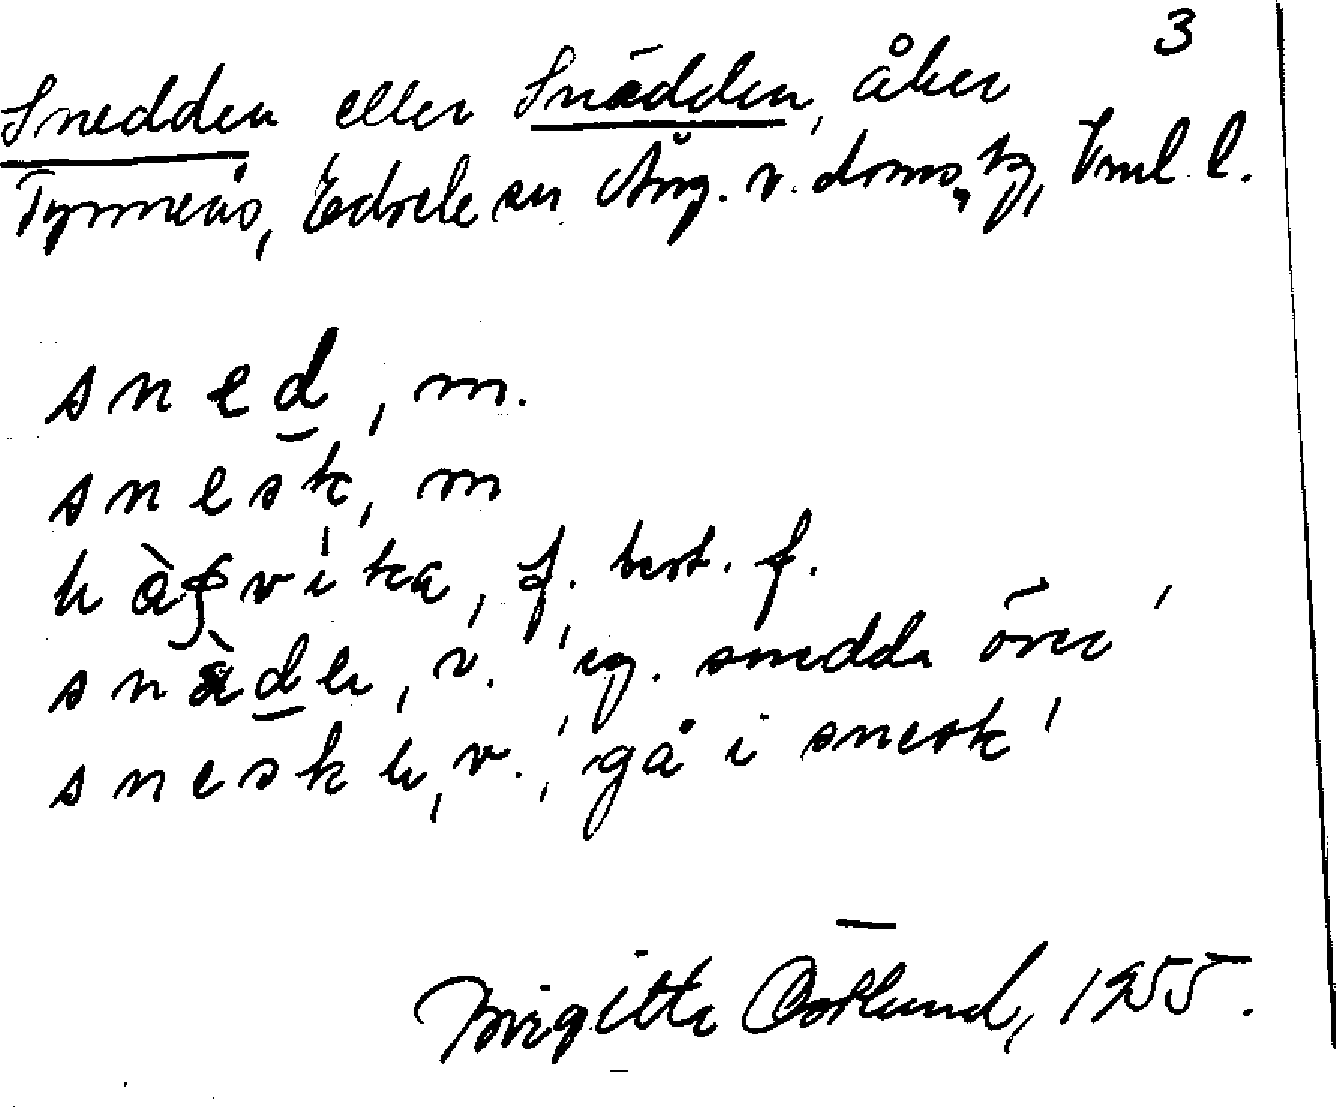 3
Snedden eller Snädden, åker
Tymneås, Edsele sn Ång. v. doms, tg, Vnl. l.
sned, m.
snesk, m
hàʃvika, f, best. f.
snàde, v. 'eg. snedda över'
sneske, v., 'gå i snesk'
Birgitta Östlund, 1955.